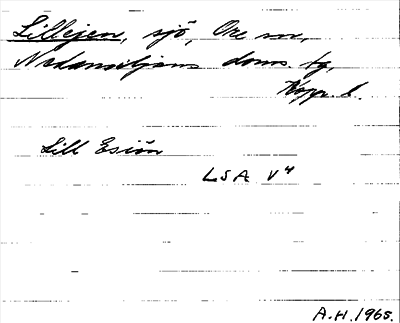 Lillejen, sjö, Ore sn,
Nedansiljans doms. tg,
Kopp. l.
Lill Esiön
LSA V4
A.H. 1965.